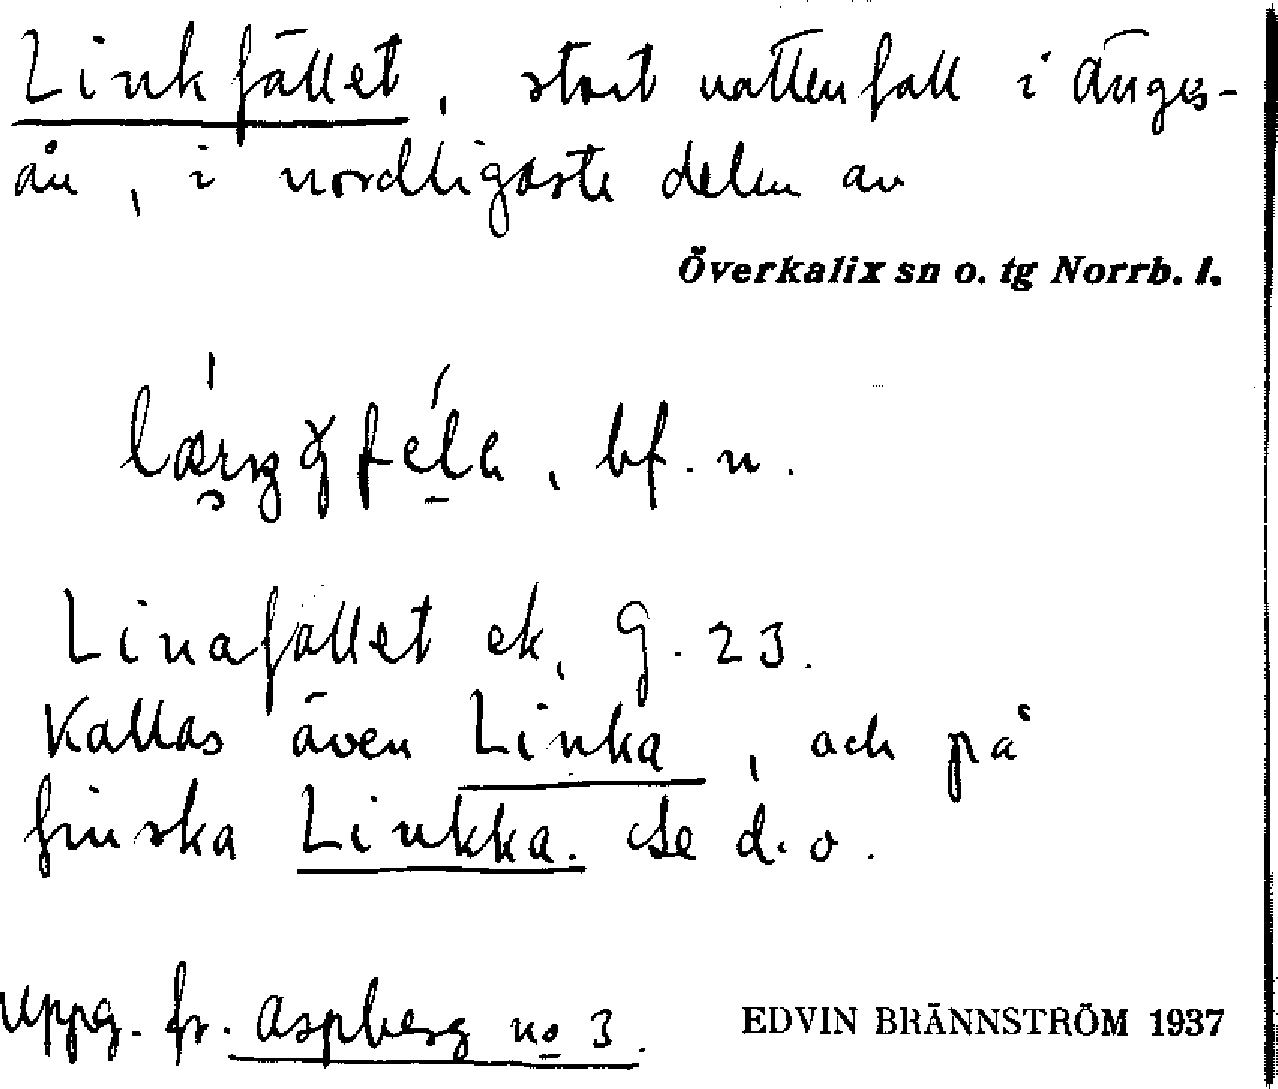 Linkfället, stort vattenfall i Änges-
ån, i nordligaste delen av
Överkalix sn o. tg Norrb. l.
bf. n.
Linafallet ek, G. 23.
Kallas även Linka, och på
finska Linkka. Se d. o.
uppg. fr. Aspberg no 3.
EDVIN BRÄNNSTRÖM 1937